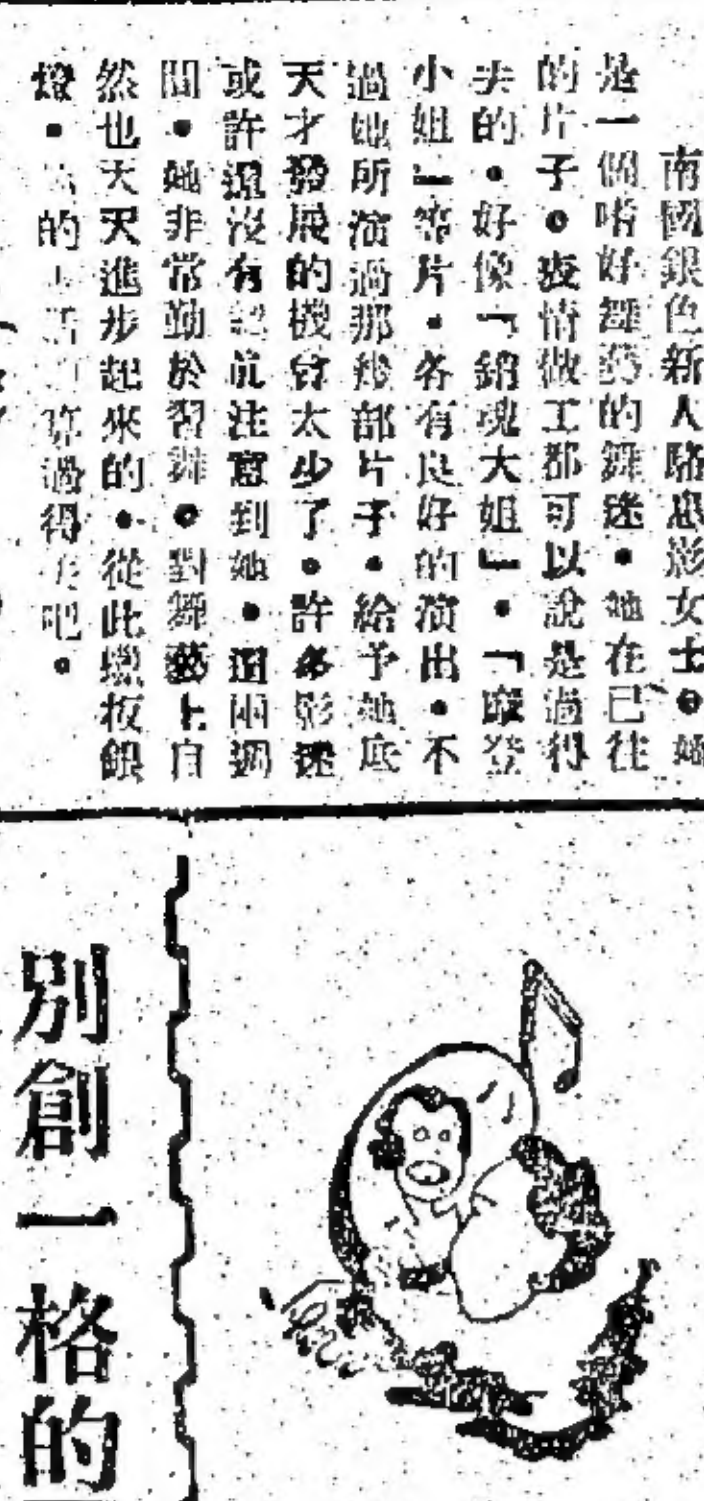 南國銀色新人駱思影女士。她
是一個嗜好舞蹈的舞迷。她在已往
的片子。表情做工都可以說是過得
去的。好像「銷魂大姐」。「摩登
小姐」等片。各有良好的演出。不
過她所演過那幾部片子。給予她底
天才發展的機會太少了。許多影迷
或許還沒有注意到她。這兩週
間。她非常勤於習舞。對舞藝上自
然也天天進步起來的。從此蠟板銀
燈。的算過得去吧。
別創一格的